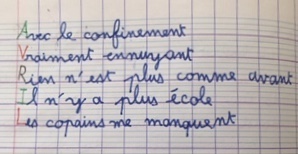 Avec le confinement
Vraiment ennuyant
Rien n'est plus comme avant
Il n'y a plus école
Les copains me manquent